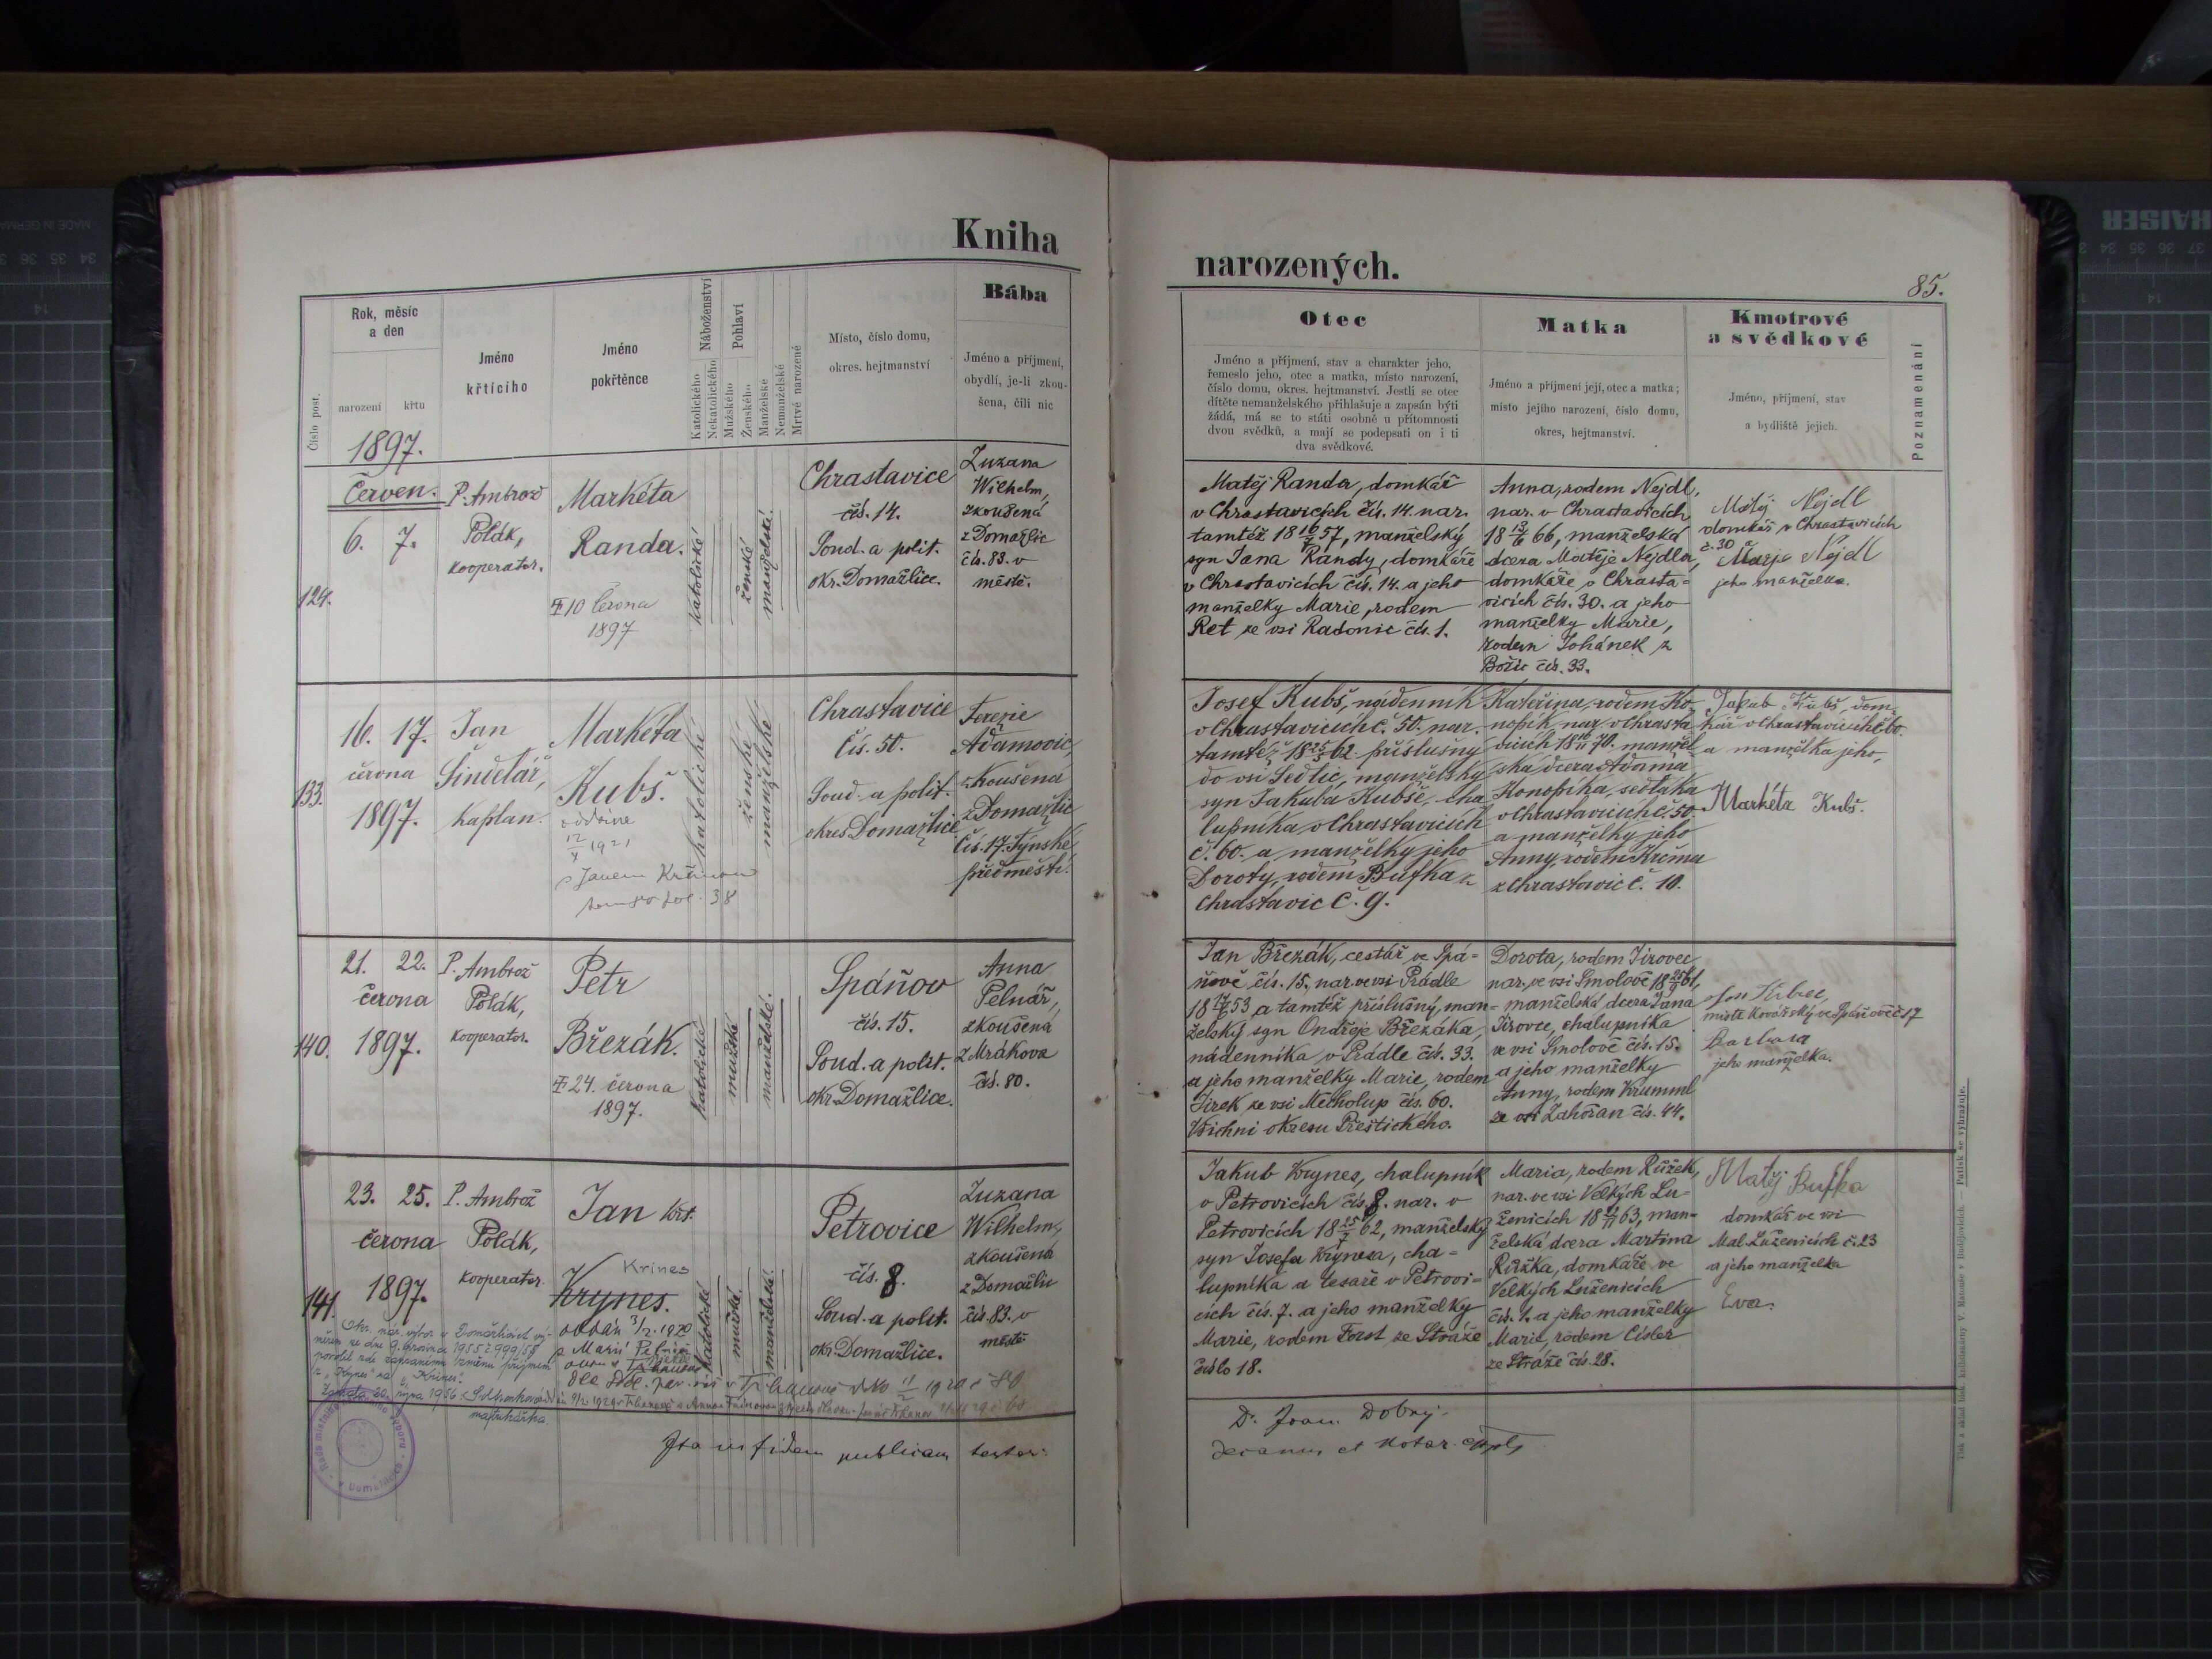 Kniha
narozených.
85.
Číslo post.
Rok, měsíc
a den
narození
křtu
Jméno
křtícího
Jméno
pokřtěnce
Náboženství
Katolického
Nekatolického
Pohlaví
Mužského
Ženského
Manželské
Nemanželské
Mrtvě narozené
Místo, číslo domu,
okres. hejtmanství
Bába
Jméno a příjmení,
obydlí, je-li zkou-
šena, čili nic
Otec
Jméno a příjmení, stav a charakter jeho,
řemeslo jeho, otec a matka, místo narození,
číslo domu, okres. hejtmanství. Jestli se otec
dítěte nemanželského přihlašuje a zapsán býti
žádá, má se to státi osobně u přítomnosti
dvou svědků, a mají se podepsati on i ti
dva svědkové.
Matka
Jméno a příjmení její, otec a matka;
místo jejího narození, číslo domu,
okres, hejtmanství.
Kmotrové
a svědkové
Jméno, příjmení, stav
a bydliště jejich.
Poznamenání
1897.
Červen.
124.
6.
7.
P. Ambrož
Polák,
kooperator.
Markéta
Randa.
10 června
1897
katolické
ženské
manželské.
Chrastavice
čís. 14.
Soud. a polit.
okr. Domažlice.
Zuzana
Wilhelm,
zkoušená
z Domažlic
čís. 83. v
městě.
Matěj Randa, domkář
v Chrastavicích čís. 14. nar.
tamtéž 18 16/7 57, manželský
syn Jana Randy, domkáře
v Chrastavicích čís. 14. a jeho
manželky Marie, rodem
Ret ze vsi Radonic čís. 1.
Anna, rodem Nejdl,
nar. v Chrastavicích
18 13/6 66, manželská
dcera Matěje Nejdla,
domkáře v Chrasta=
vicích čís. 30. a jeho
manželky Marie,
rodem Johánek z
čís. 33.
Matěj Nejdl
domkář v Chrastavicích
č. 30 a
Marje Nejdl
jeho manželka.
133.
16.
17.
června
1897.
Jan
Šindelář,
kaplan.
Markéta
Kubš.
1921
s Janem
38
katolické
ženské
manželské
Chrastavice
čís. 50.
Soud. a polit.
okres Domažlice
Terezie
Adamovic,
zkoušena
z Domažlic
čís. 17. Týnské
předměstí.
Josef Kubš, nádenník
v Chrastavicích č. 50. nar.
tamtéž 18 25/3 62. příslušný
do vsi Sedlic, manželský
syn Jakuba Kubše, cha
lupníka v Chrastavicích
č. 60. a manželky jeho
Doroty, rodem Bufka z
Chrastavic č. 9.
Kateřina, rodem Ko
nopík, nar. v Chrasta
vicích 70. manžel
ská dcera Adama
Konopíka, sedláka
v Chrastavicích č. 50.
a manželky jeho
Anny, rodem Krčma
z Chrastavic č. 10.
Jakub Kubš, dom
kář v Chrastavicích č. 60.
a manželka jeho,
Markéta Kubš.
140.
21.
22.
června
1897.
P. Ambrož
Polák,
kooperator.
Petr
Březák.
24. června
1897.
katolické
mužské
manželské.
Spáňov
čís. 15.
Soud. a polit.
okr. Domažlice.
Anna
Pelnář,
zkoušená
z Mrákova
čís. 80.
Jan Březák, cestář ve Spá=
ňově čís. 15, nar. ve vsi Prádle
53 a tamtéž příslušný, man=
želský syn Ondřeje Březáka,
nádenníka v Prádle čís. 33.
a jeho manželky Marie, rodem
Jirek ze vsi Měcholup čís. 60.
Všichni okresu Přeštického.
Dorota, rodem Jirovec,
nar. ve vsi Smolově 61,
manželská dcera Jana
Jirovce, chalupníka
ve vsi Smolově čís. 15.
a jeho manželky
Anny, rodem Krumml
ze vsi Zahořan čís. 44.
mistr kovářský ve Spáňově č. 17
Barbara
jeho manželka.
141.
23.
25.
června
1897.
P. Ambrož
Polák,
kooperator.
Jan Křt.
Krines
Krynes.
oddán 3/2. 1920
s Marií
katolické
mužské.
manželské.
Petrovice
čís. 8.
Soud. a polit.
okr. Domažlice.
Zuzana
Wilhelm,
zkoušená
z Domažlic
čís. 83. v
městě
Jakub Krynes, chalupník
v Petrovicích čís. 8. nar. v
Petrovicích 18 25/7 62, manželský
syn Josefa Krynesa, cha=
lupníka a tesaře v Petrovi=
cích čís. 7. a jeho manželky
Marie, rodem Forst ze Stráže
číslo 18.
Maria, rodem Růžek,
nar. ve vsi Velkých Lu=
ženicích 63, man=
želská dcera Martina
Růžka, domkáře ve
Velkých Luženicích
čís. 1. a jeho manželky
Marie, rodem Císler
ze Stráže čís. 28.
Matěj Bufka
domkář ve vsi
Mal. Luženicích č. 23
a jeho manželka
Eva.
Okr. nár. výbor v Domažlicích vý-
měrem ze dne 9. prosince 1955 č. 999/55
povolil zde zapsanému změnu příjmení
z „Krynes" na „Krines".
října 1956
matrikářka.
Ita in fidem publicam testor:
Dr. Joan. Dobrý
decanus et notar.
Tisk a sklad knihtiskárny V. Matouše v Budějovicích. — Patisk se vyhražuje.
MADE IN GERMANY
KAISER